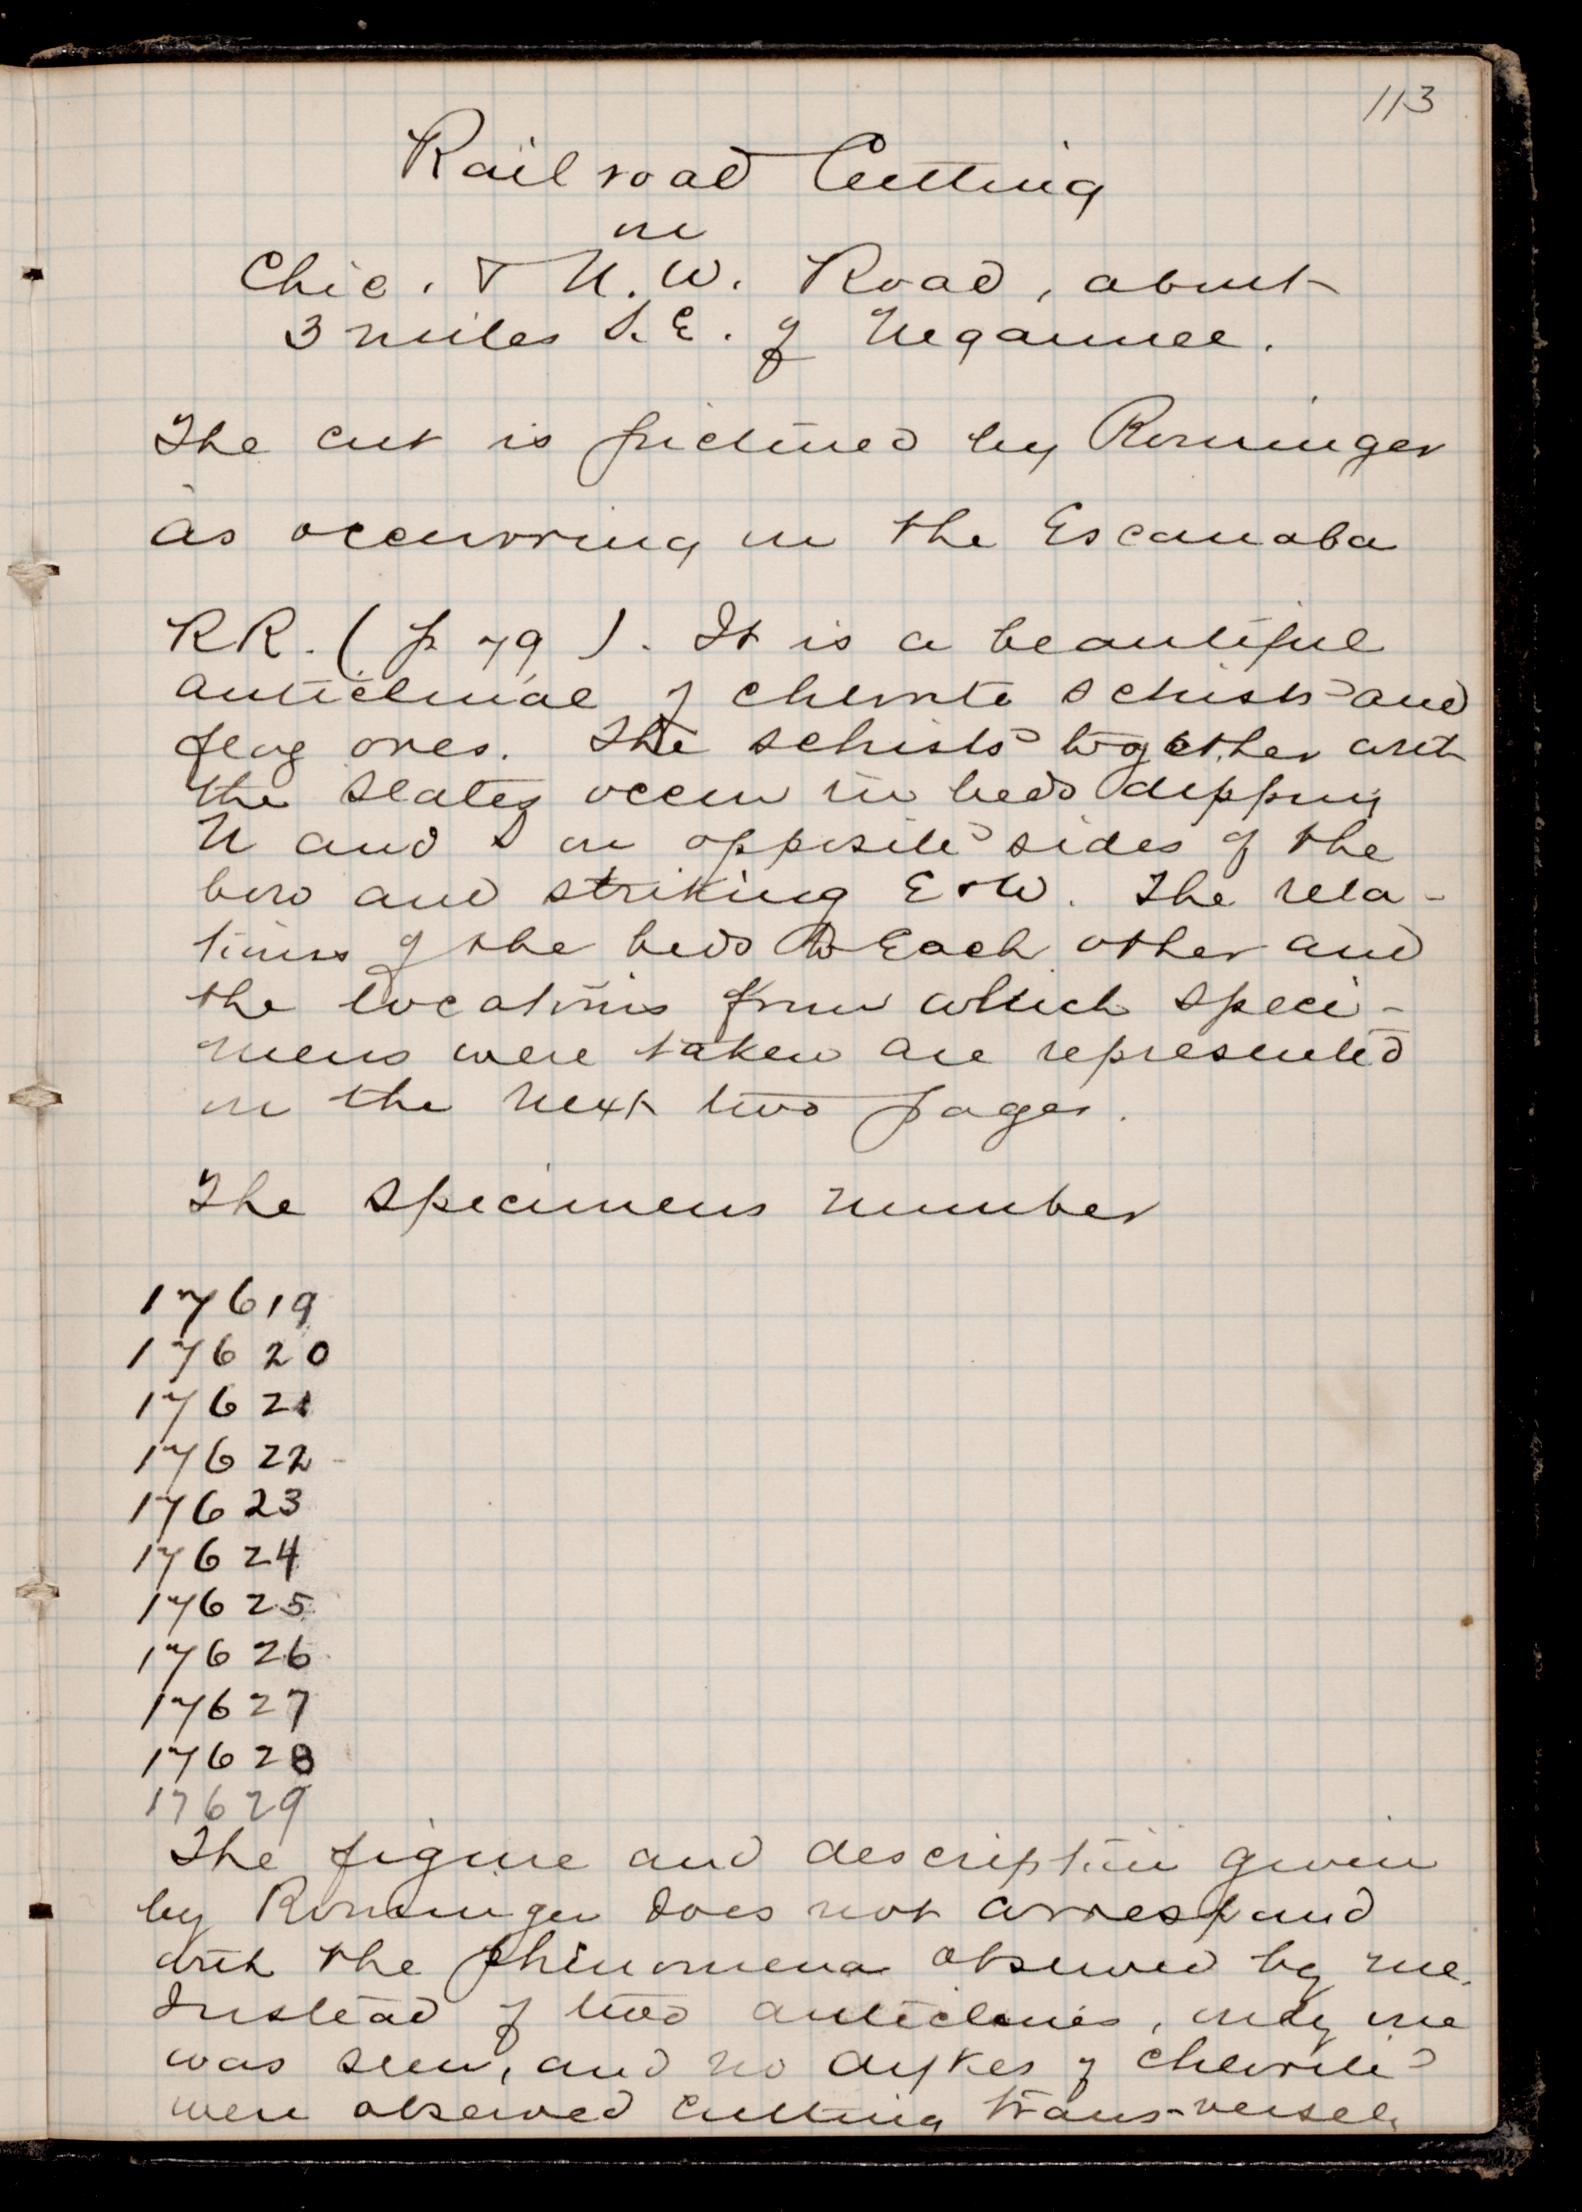 113
Railroad Cutting
on
Chic. & N. W. Road, about
3 miles S. E. of Negaunee.
The cut is pictured by Rominger
as occurring on the Escanaba
RR. (p 79). It is a beautiful
anticlinal of chlorite schists and
flag ores. The schists together with
the slates occur in beds dipping
N and S on opposite sides of the
bow and striking E & W. The rela-
tions of the beds to each other and
the locations from which speci-
mens were taken are represented
on the next two pages.
The specimens number
17619
17620
17621
17622
17623
17624
17625
17626
17627
17628
17629
The figure and description given
by Rominger does not correspond
with the phenomena observed by me.
Instead of two anticlines, only one
was seen, and no dykes of chlorite
were observed cutting trans-versely